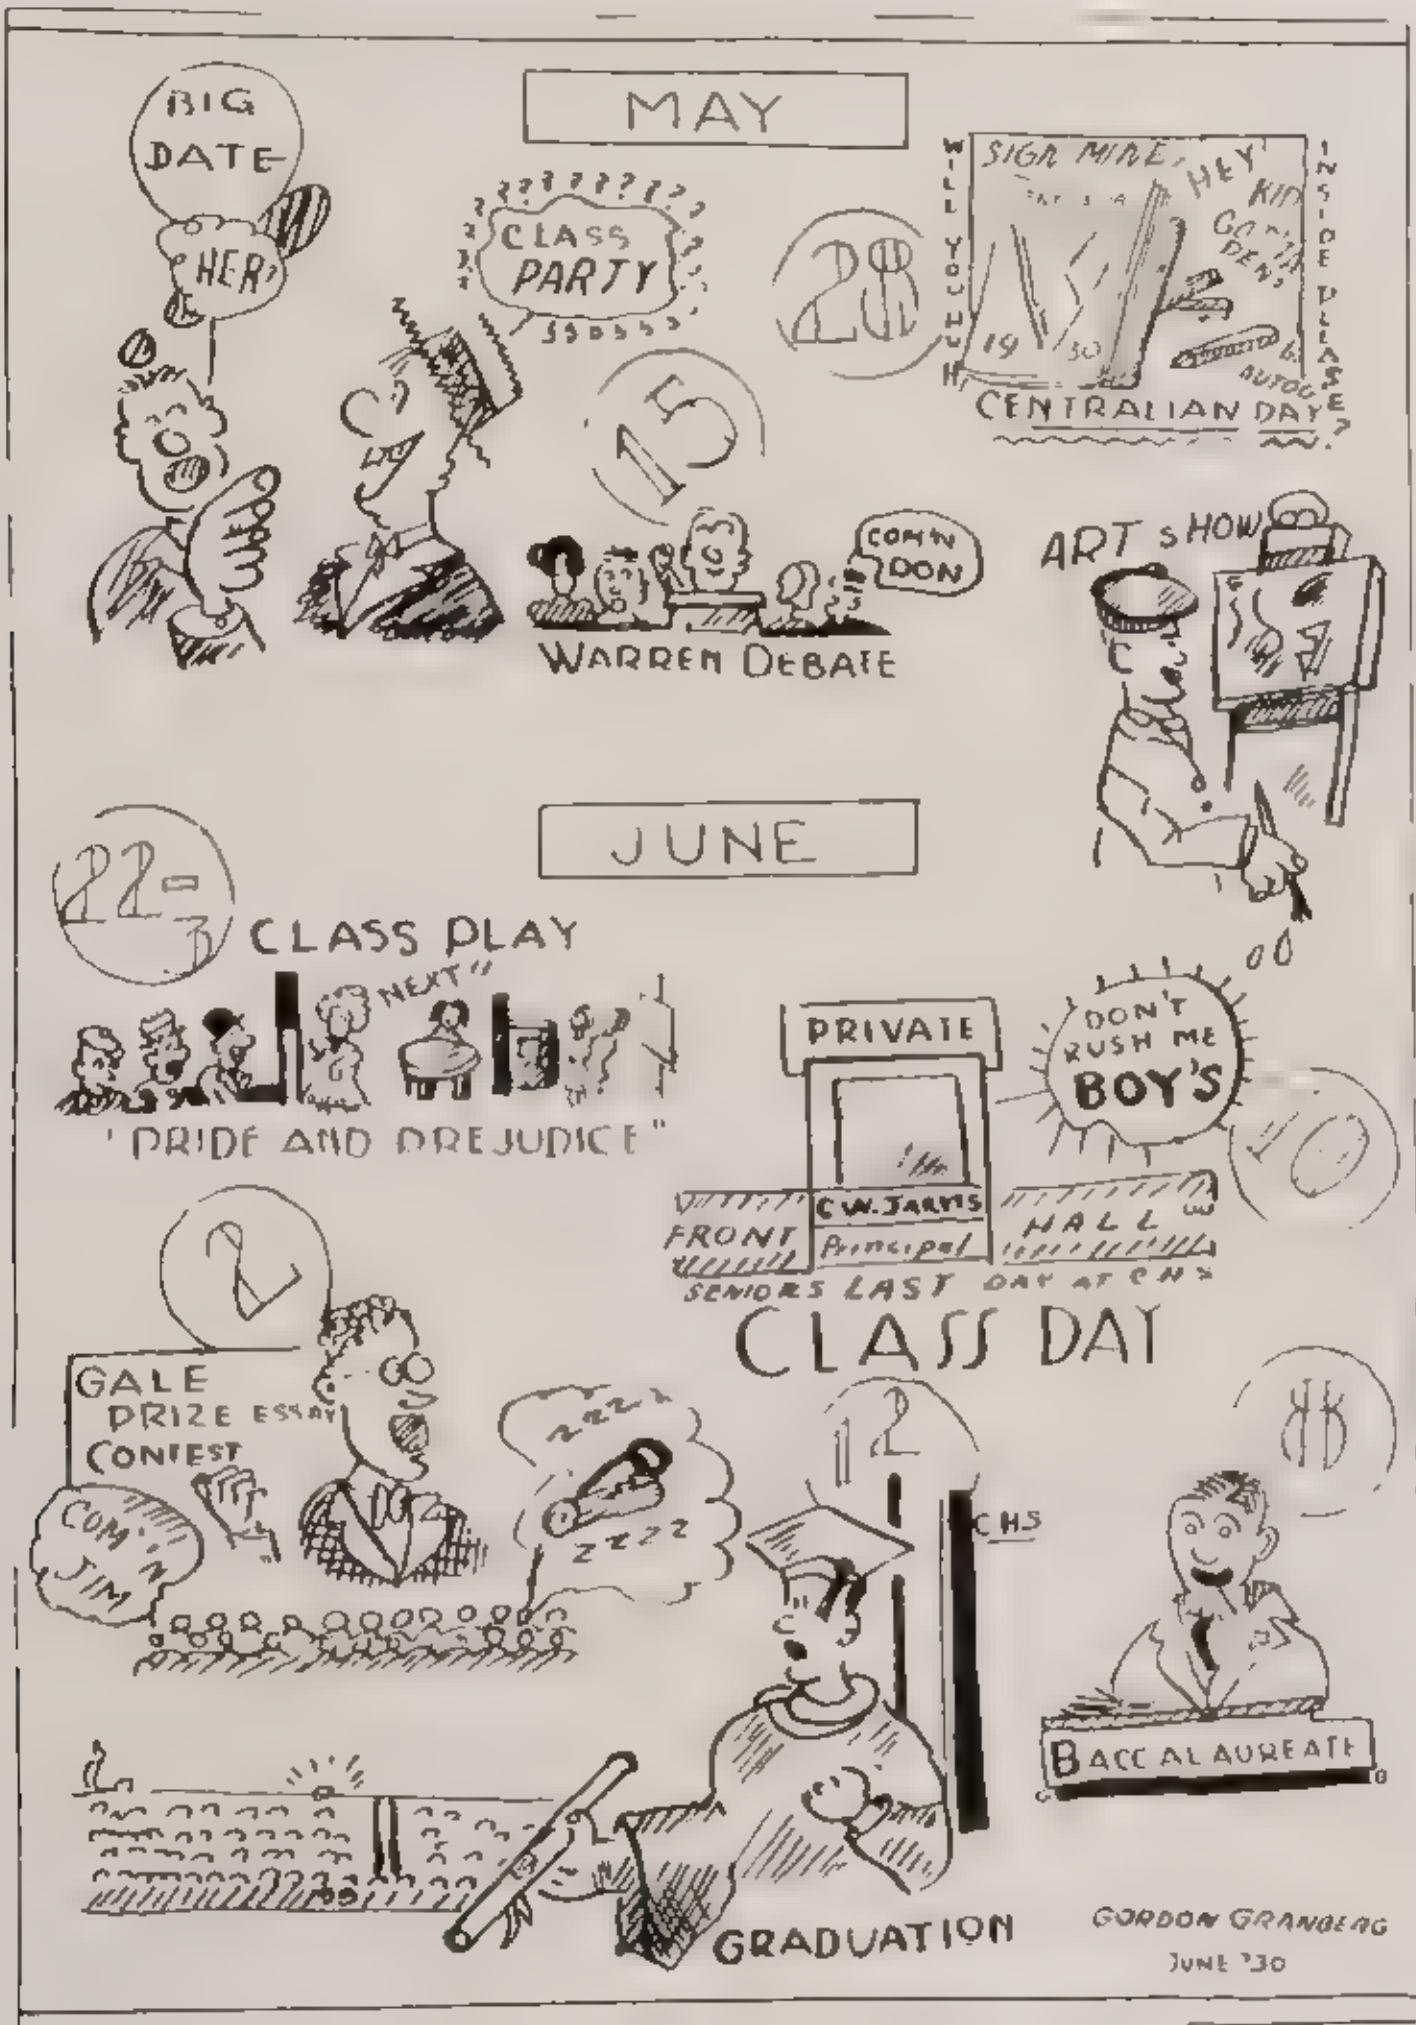 MAY
BIG
DATE
HER?
? ? ? ? ? ? ? ?
CLASS
PARTY
28
WILL YOUHUH
SIGN MINE,
HEY!
KID
19 30
INSIDE PLEASE?
CENTRALIAN DAY
15
COM'N
DON
WARREN DEBATE
ART SHOW
JUNE
22-3
CLASS PLAY
NEXT"
"PRIDE AND PREJUDICE"
PRIVATE
DON'T
RUSH ME
BOY'S
10
C.W. JARVIS
FRONT
HALL
Principal
SENIORS LAST DAY AT CHS
CLASS DAY
2
GALE
PRIZE ESSAY
CONTEST
COM'N
JIM
ZZZZZ
ZZZZ
12
CHS
8
BACCALAUREATE
GRADUATION
GORDON GRANBERG
JUNE '30